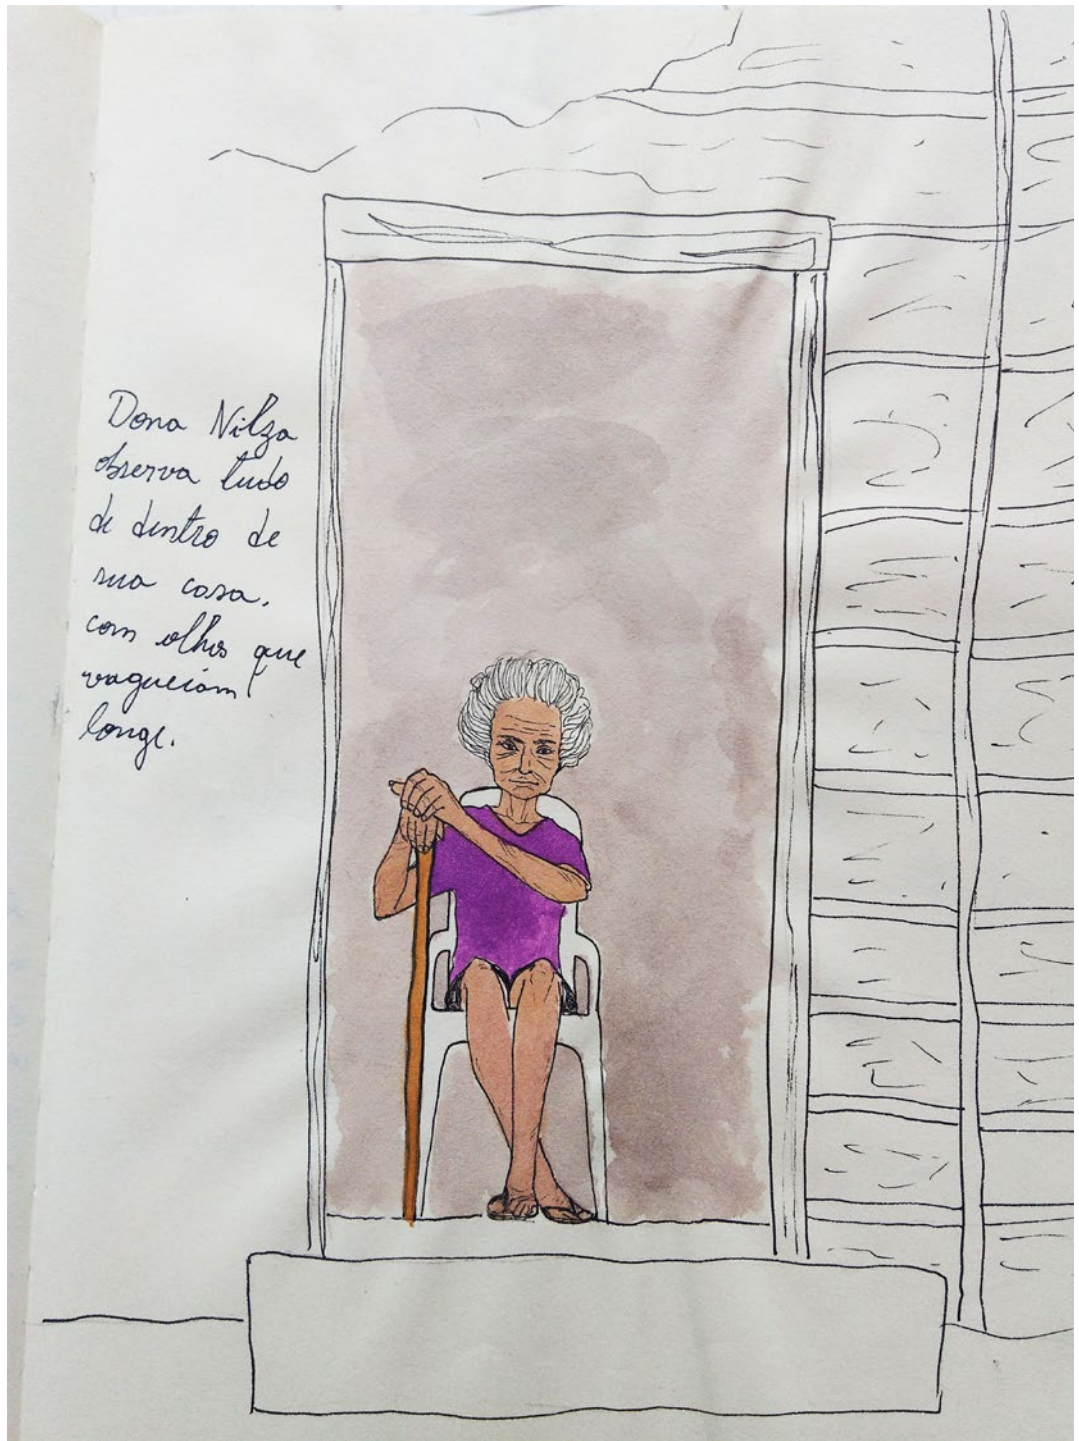 Dona Nilza
observa tudo
de dentro de
sua casa.
com olhos que
vagueiam
longe.